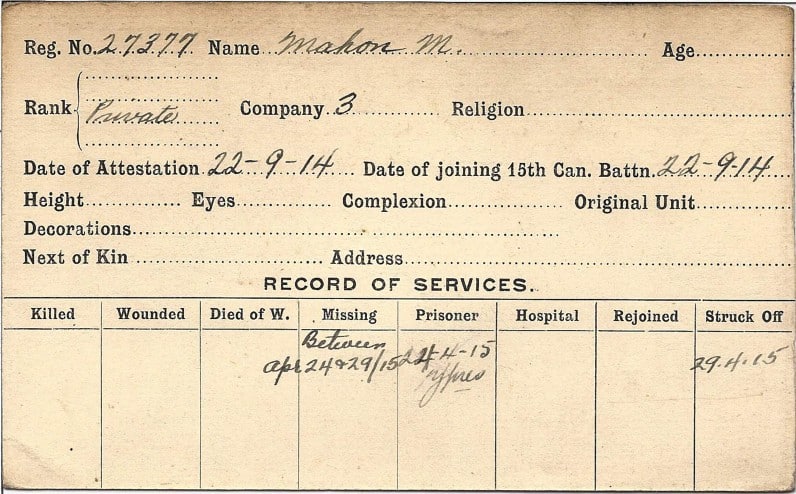 Reg. No. 27377 Name Mahon M. Age
Rank Private Company 3 Religion
Date of Attestation 22-9-14 Date of joining 15th Can. Battn. 22-9-14
Height Eyes Complexion Original Unit
Decorations
Next of Kin Address
RECORD OF SERVICES.
Killed Wounded Died of W. Missing Prisoner Hospital Rejoined Struck Off
Between
Apr 24 & 29/15 24-4-15 29.4.15
Ypres